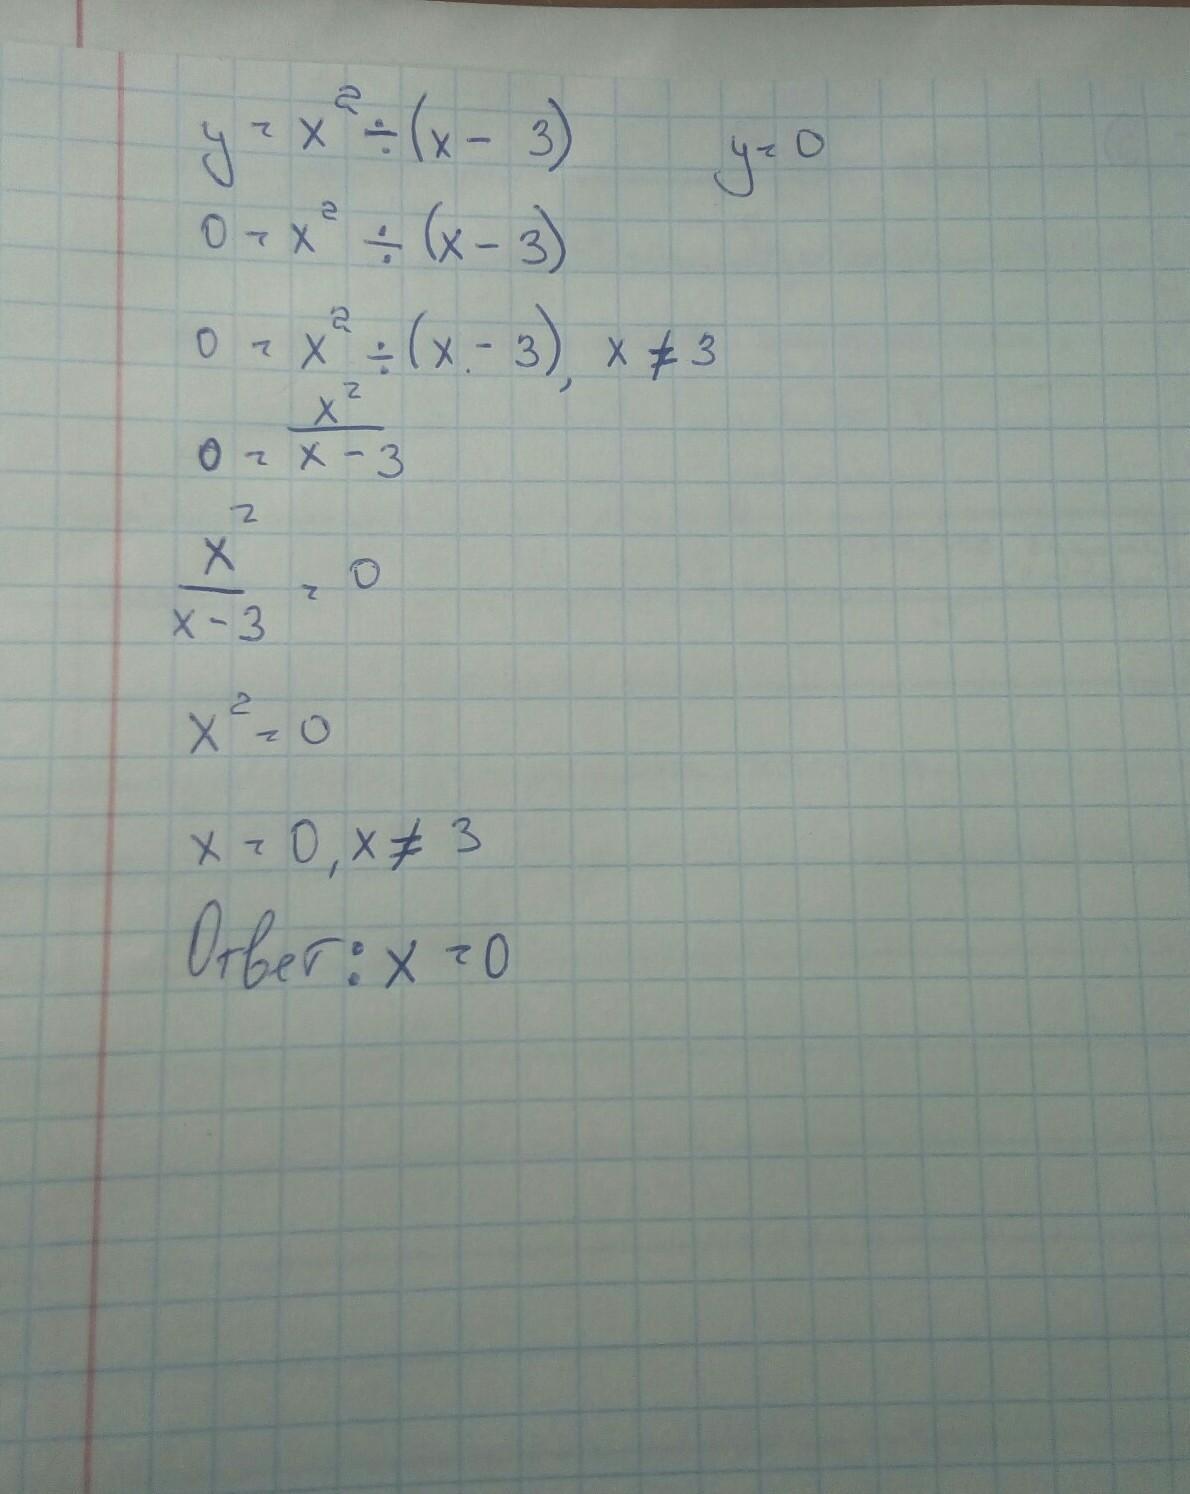 y = x² ÷ (x - 3) y = 0
0 = x² ÷ (x - 3)
0 = x² ÷ (x - 3), x ≠ 3
0 = x² / (x - 3)
x² / (x - 3) = 0
x² = 0
x = 0, x ≠ 3
Ответ: x = 0